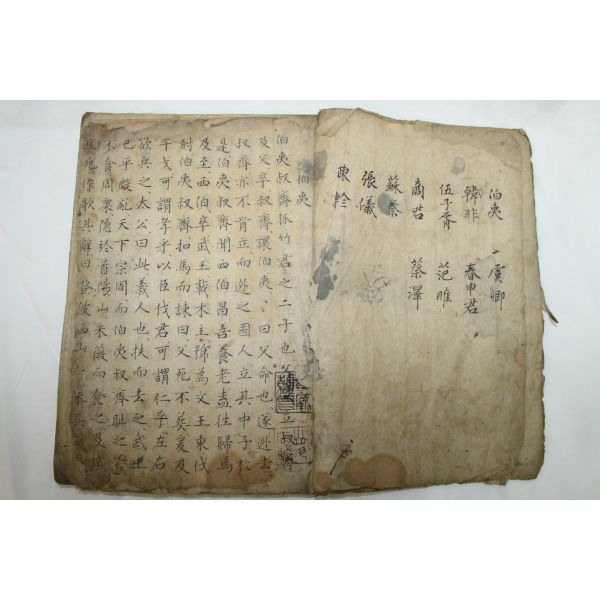 伯夷 虞卿
韓非 春申君
伍子胥 范睢
商君 蔡澤
蘇秦
張儀
陳軫
伯夷
伯夷叔齊孤竹君之二子也父立叔齊
及父卒叔齊讓伯夷〻曰父命也遂逃去
叔齊亦不肯立而逃之國人立其中子於
是伯夷叔齊聞西伯昌善養老盍往歸焉
及至西伯卒武王載木主號為文王東伐
紂伯夷叔齊扣馬而諫曰父死不葬爰及
干戈可謂孝乎以臣伐君可謂仁乎左右
欲兵之太公曰此義人也扶而去之武王
已平殷亂天下宗周而伯夷叔齊恥之義
不食周粟隱於首陽山采薇而食之及餓
且死作歌其辭曰登彼西山兮采其